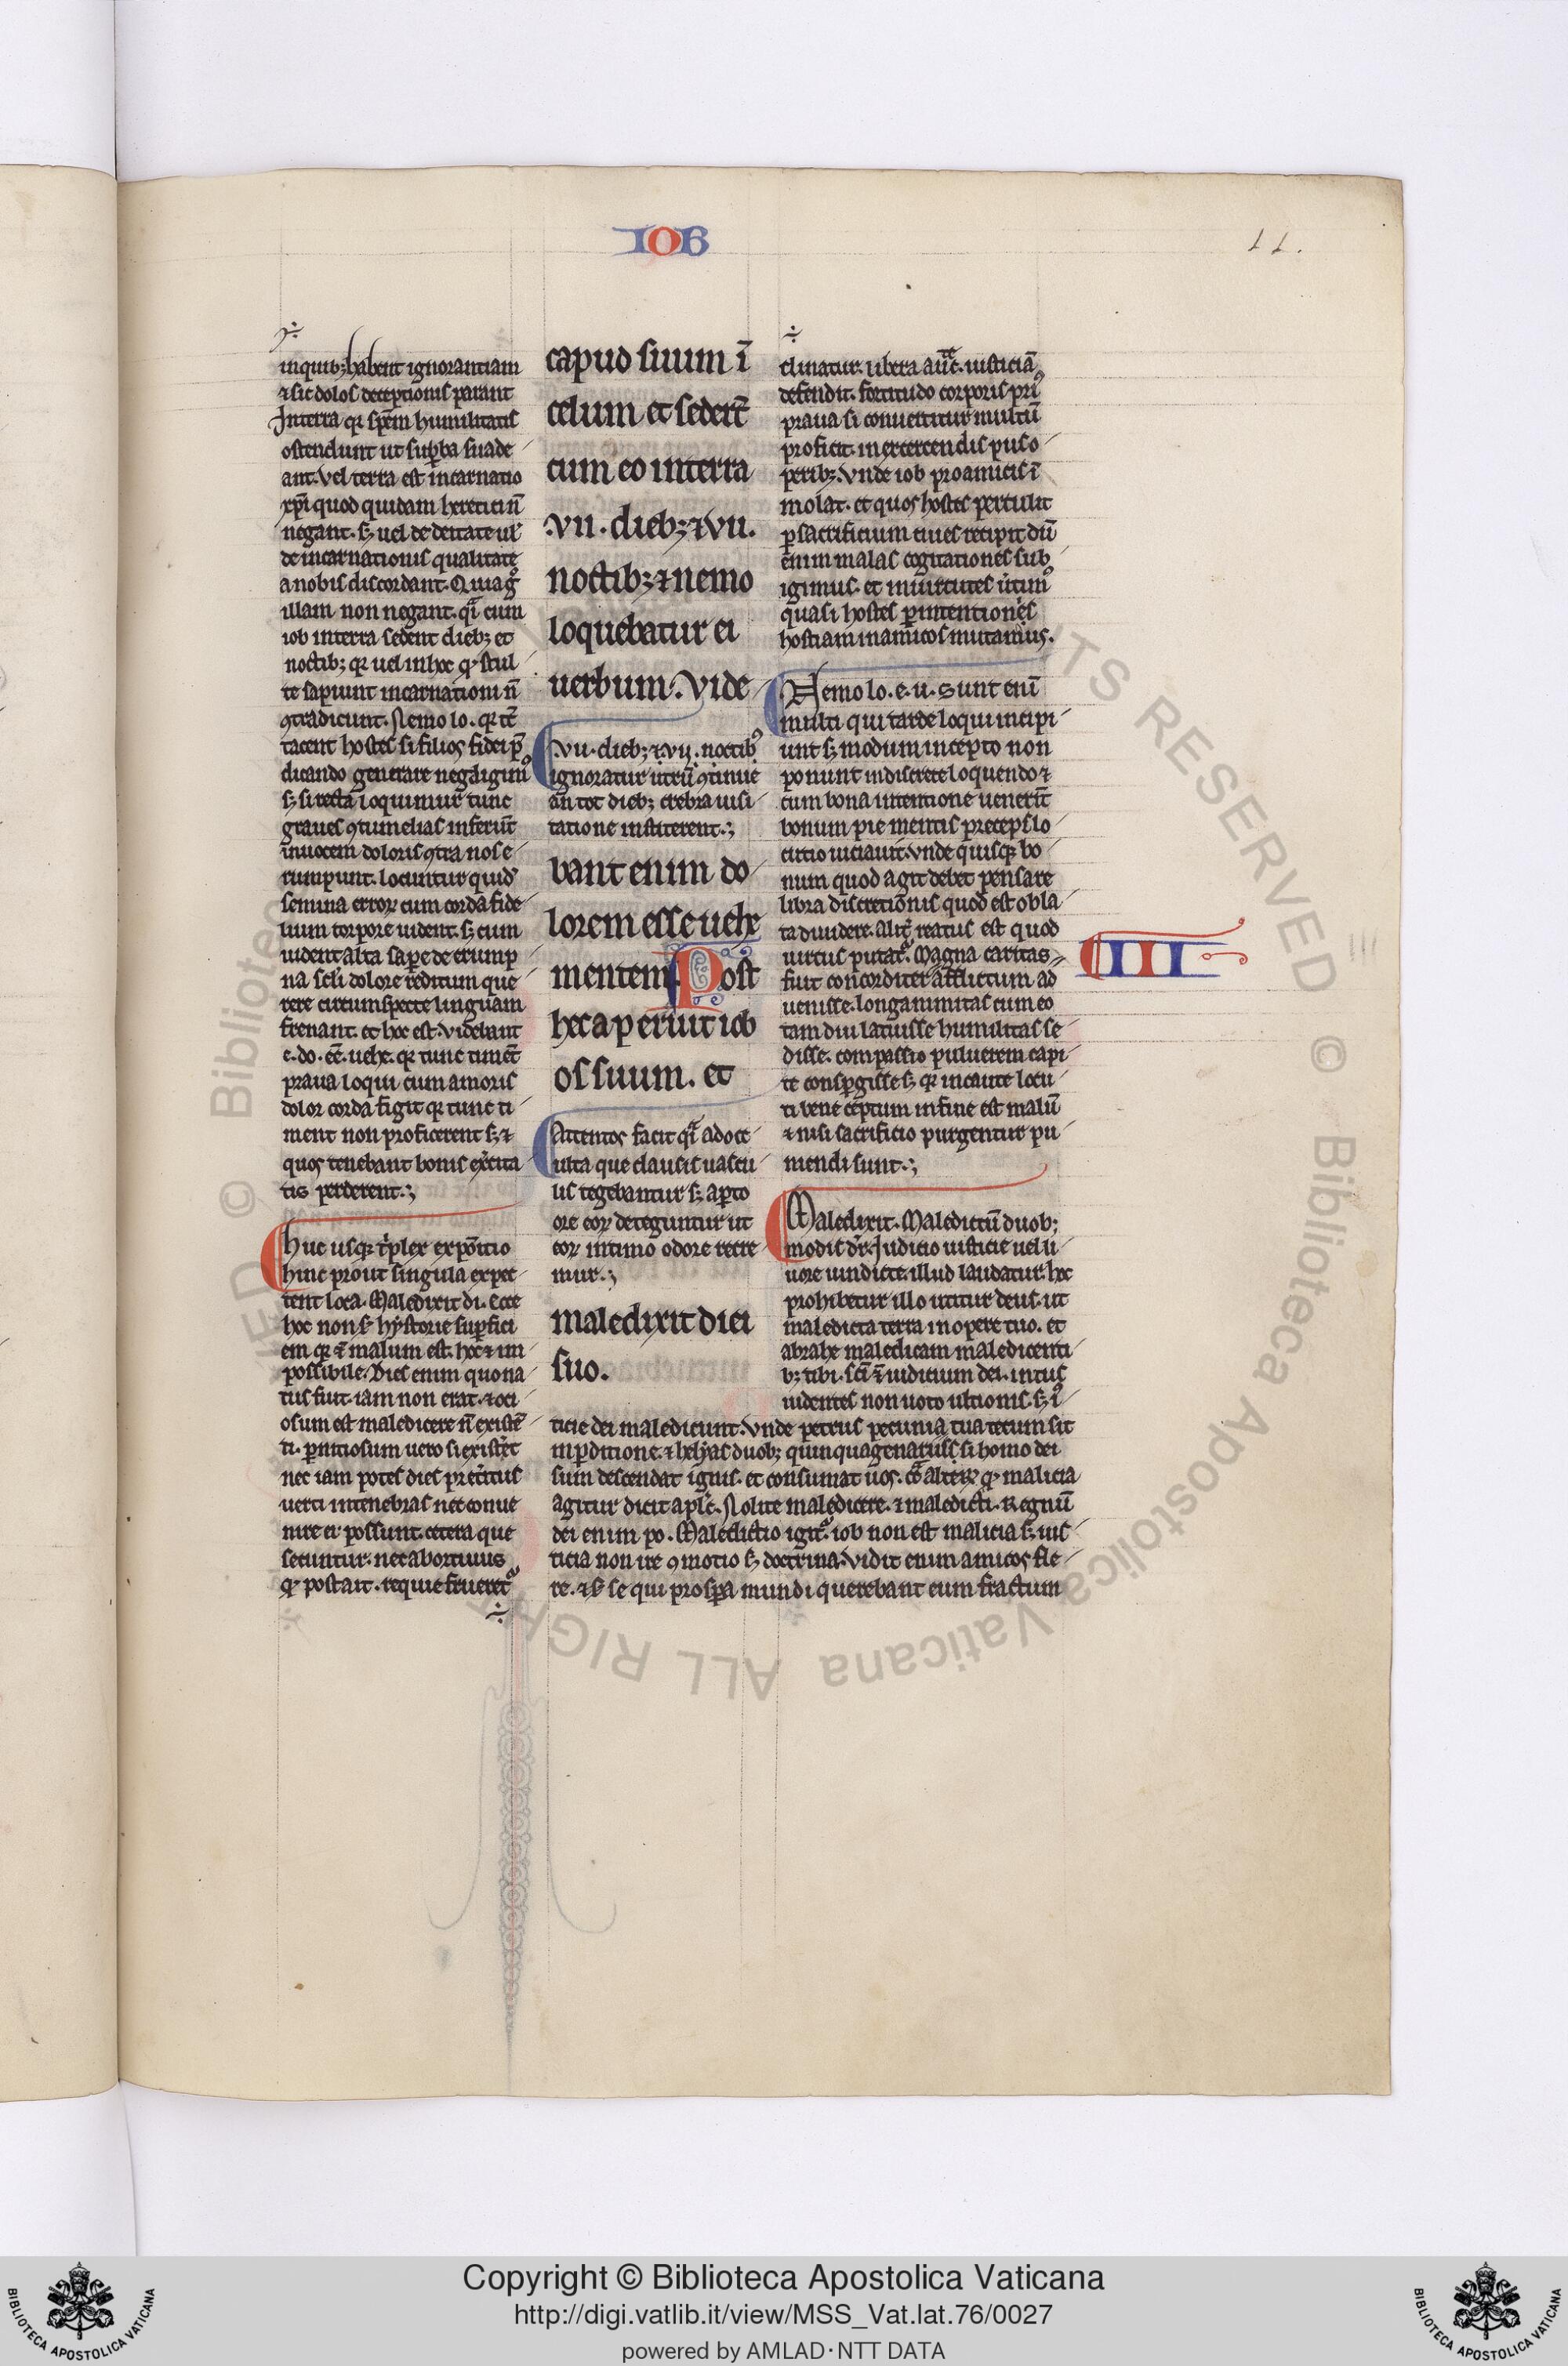 IOB
11.
inquib; habent ignorantiam
⁊ sic dolos deceptionis parant
Interra qꝛ spēm humilitatis
ostendunt ut supba suade
ant. Vel terra est incarnatio
xp̄i quod quidam heretici n̄
negant. s; uel de deitate ul'
de incarnationis qualitate
a nobis discordant. Quia gͦ
illam non negant. q̄i cum
iob interra sedent dieb; et
noctib; qꝛ uel inhoc qꝫ stul
te sapiunt incarnationi n̄
ꝯtradicunt. Nemo lo. qꝛ tc̄
tacent hostes si filios fidei p̄
dicando generare negligimꝰ
s; si recta loquimur tunc
graues ꝯtumelias inferūt
inuocem doloris ꝯtra nos e
rumpunt. locuntur quidē
semina erroꝝ cum corda fide
lium torpore uident. s; cum
uident alta sapͤe de erump
na sc̄li dolore reditum que
rere circumspecte linguam
frenant. et hoc est. Videbant
e. do. eē. uehe. qꝛ tunc timēt
praua loqui cum amoris
dolor corda figit qꝛ tunc ti
ment non proficerent s; ⁊
quos tenebant bonis excita
tis perderent.;
huc usqꝫ tͥplex exp̄oitio
hinc prout singula expec
tent loca. Maledixit di. Ecce
hoc non sͫ hystorie supfici
em qꝛ ⁊ malum est. hoc ⁊ im
possibile. Dies enim quo na
tus fuit iam non erat. ⁊ oci
osum est maledicere n̄ existē
ti. pͥnitiosum uero si existͤet
nec iam potest dies pretͥitus
uerti intenebras nec conue
nire ei possunt cetera que
secuntur. nec abortiuus
qꝫ postait. requie frueretᷣ
capud suum ī
celum et sederēt
cum eo interra
.vii. dieb; ⁊ vii.
noctib; ⁊ nemo
loquebatur ei
uerbum. Vide
vii. dieb; ⁊ vij. noctibꝰ
ignoratur utrū ꝯtinue
an tot dieb; crebra uisi
tatione insisterent.;
bant enim do
lorem esse uehe
mentem. Post
hec aperiut iob
os suum. et
Attentos facit qͥ ad oce
ulta que clausis uascu
lis tegebantur s; apto
ore eoꝝ deteguntur ut
eoꝝ intimo odore recre
mur.;
maledixit diei
suo.
clinatur. libera aūt. iusticiā
defendit. fortitudo corporis priꝰ
praua si conuertitur multū
proficit. in exercendis piis o
peribꝫ. Vnde iob pro amicis ī
molat. et quos hostes pertulit
p sacrificium ciues recipit dū
enim malas cogitationes sub
igimus. et in uirtutes utimꝰ
quasi hostes p intentiones
hostiam inamicos mutamus.
Nemo lo. e. u. Sunt enī
multi qui tarde loqui incipi
unt s; modum incepto non
ponunt indiscrete loquendo ⁊
cum bona intentione uenerīt
bonum pie mentis preceps lo
cutio uiciauit. Vnde quisqꝫ bo
num quod agit debet pensare
libra discretionis quod est obla
ta diuidere. Alit̄ reatus est quod
uirtus putatᷣ. Magna caritas
fuit concorditer afflictum ad
uenisse. longanimitas cum eo
tam diu latuisse humilitas se
disse. compassio puluerem capi
te conspgisse s; qꝛ incaute locu
ti bene ceptum in fine est malū
⁊ nisi sacrificio purgentur pu
niendi sunt.;
III
Maledixit. Maledictū duob;
modis dr̄. Iudicio iusticie uel li
uore uindicte. illud laudatur. hoc
prohibetur illo utitur deus. ut
maledicta terra in opere tuo. et
abrahe maledicam maledicenti
b; tibi. sc̄i ⁊ iudicium dei. intus
uidentes non uoto ultionis. s; iꝰ
ticie dei maledicunt. Vnde petrus pecunia tua tecum sit
in pditione. ⁊ helyas duob; quinquagenariis si homo dei
sum descendat ignis. et consumat uos. cōͣ alteꝝ qꝫ malicia
agitur dicit apl's. Nolite maledicere. ⁊ maledicti. Regnū
dei enim po. Maledictio igitᷣ. iob non est malicia s; ius
ticia non ire ꝯmotio s; doctrina. Vidit enim amicos fle
re. ⁊ sͫ se qui prospa mundi querebant eum fractum
Copyright © Biblioteca Apostolica Vaticana
http://digi.vatlib.it/view/MSS_Vat.lat.76/0027
powered by AMLAD·NTT DATA